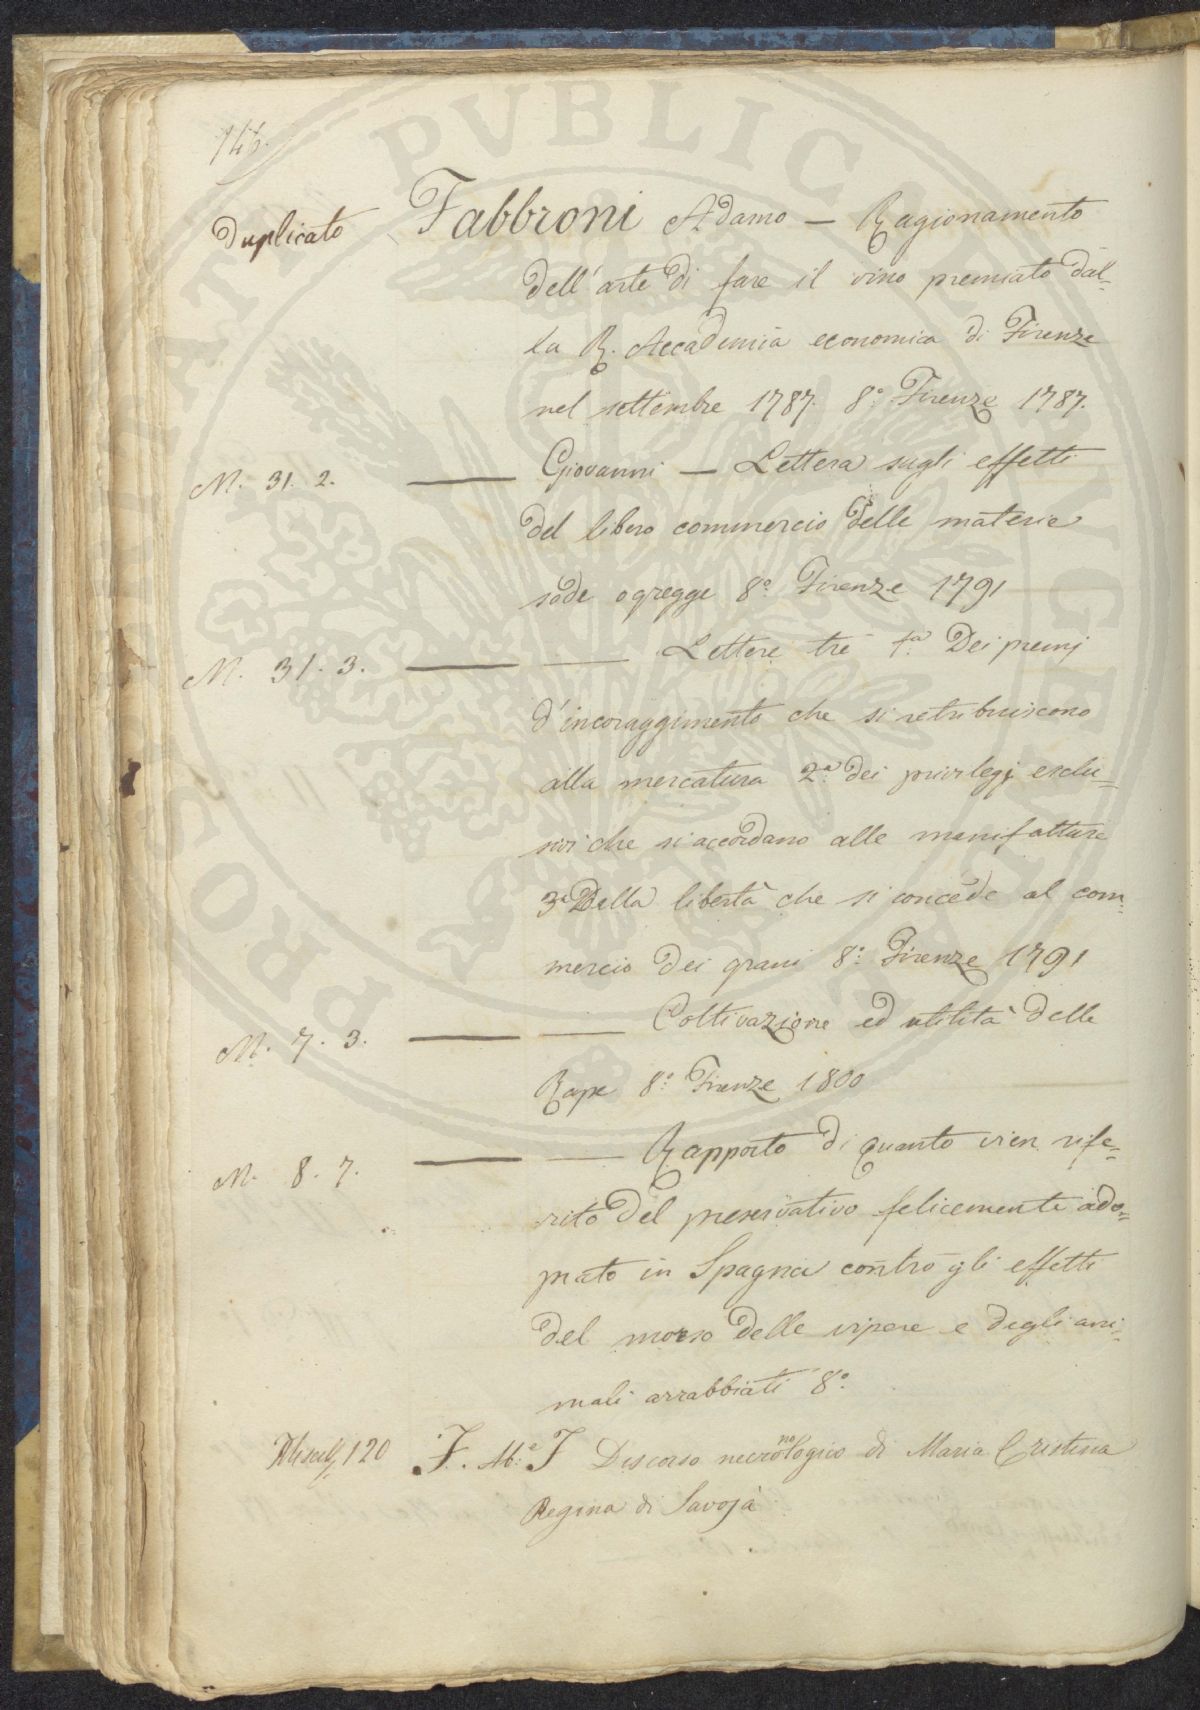 146.
Duplicato Fabbroni Adamo — Ragionamento
dell'arte di fare il vino premiato dal=
la R. Accademia economica di Firenze
nel settembre 1787. 8.° Firenze 1787.
M. 31. 2. —— Giovanni — Lettera sugli effetti
del libero commercio delle materie
sode o gregge 8.° Firenze 1791
M. 31. 3. —— —— Lettere tre 1.a Dei premj
d'incoraggimento che si retribuiscono
alla mercatura 2.a dei privilegj esclu=
sivi che si accordano alle manifatture
3.a Della libertà che si concede al com=
mercio dei grani 8.° Firenze 1791
M. 7. 3. —— —— Coltivazione ed utilità delle
Rape 8.° Firenze 1800
M. 8. 7. —— —— Rapporto di quanto vien rife=
rito del preservativo felicemente ado=
prato in Spagna contro gli effetti
del morso delle vipere e degli ani=
mali arrabbiati 8.°
Miscell. 120 F. Ab.e F Discorso necrologico di Maria Cristina
Regina di Savoja
PROCURATE PUBLICAE